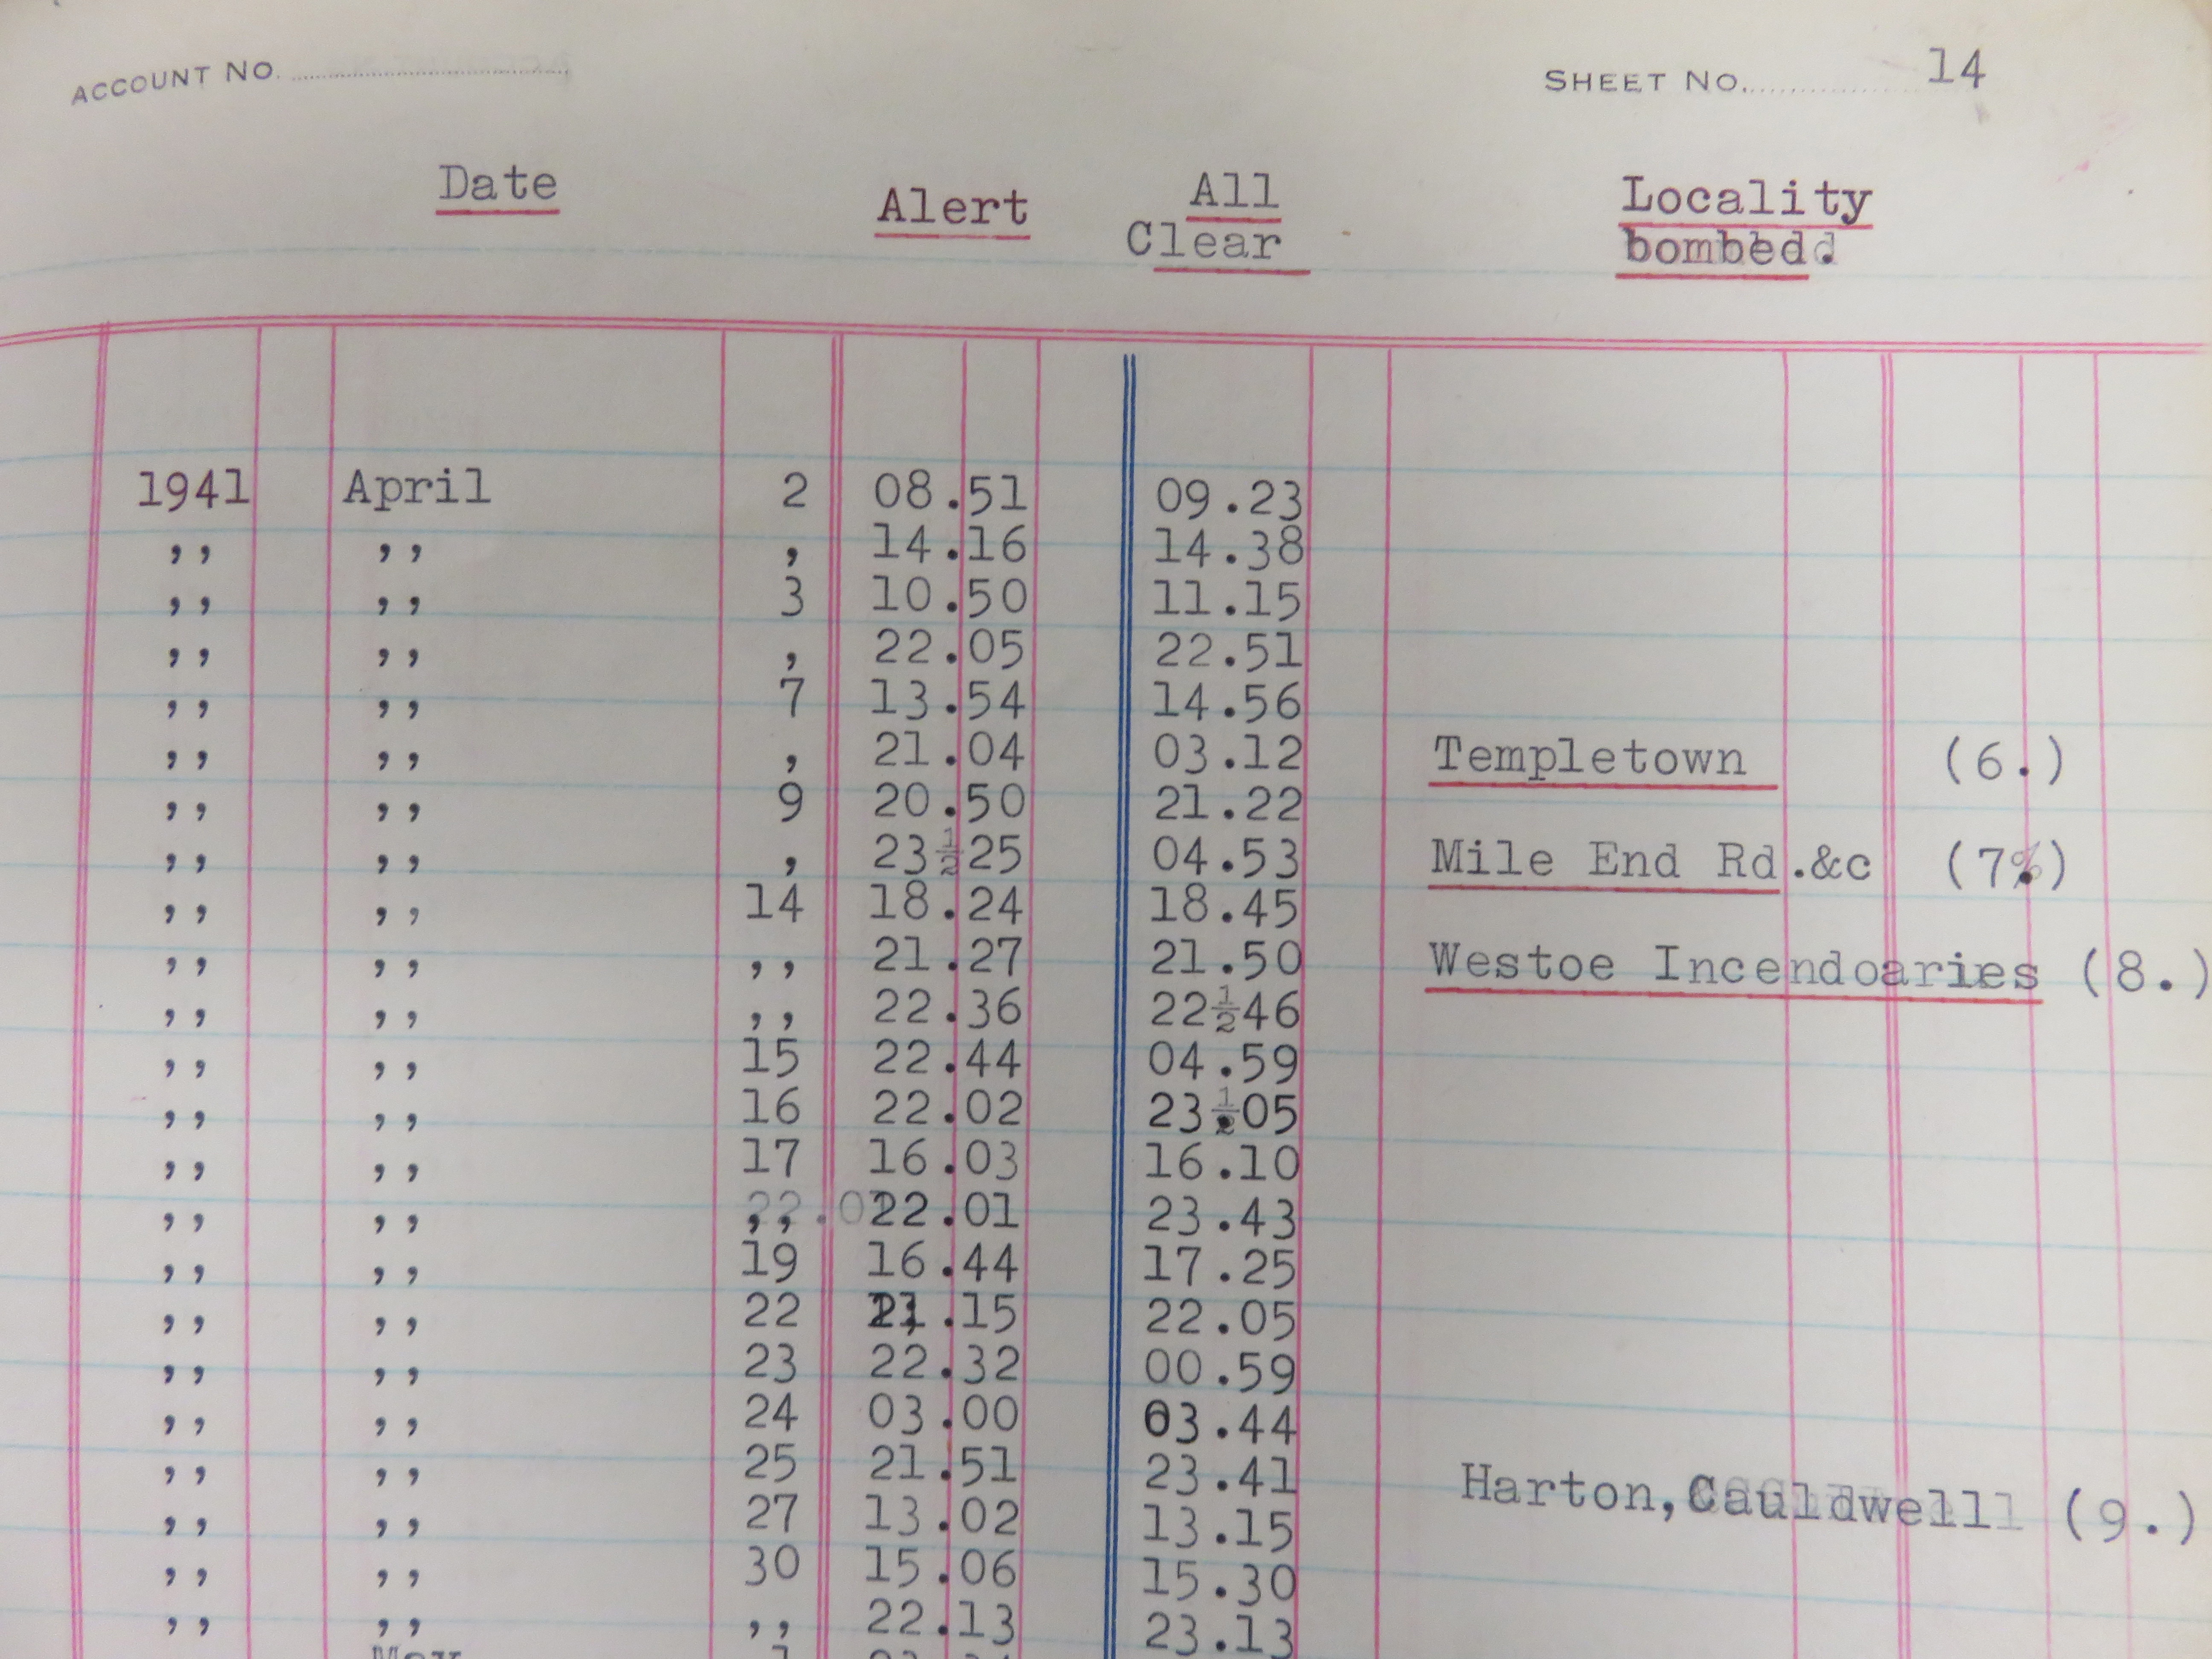 ACCOUNT NO. SHEET NO. 14
Date Alert All Clear Locality bombed.
1941 April 2 08.51 09.23
,, ,, , 14.16 14.38
,, ,, 3 10.50 11.15
,, ,, , 22.05 22.51
,, ,, 7 13.54 14.56
,, ,, , 21.04 03.12 Templetown (6.)
,, ,, 9 20.50 21.22
,, ,, , 23½25 04.53 Mile End Rd.&c (7.)
,, ,, 14 18.24 18.45
,, ,, ,, 21.27 21.50 Westoe Incendoaries (8.)
,, ,, ,, 22.36 22½46
,, ,, 15 22.44 04.59
,, ,, 16 22.02 23.05
,, ,, 17 16.03 16.10
,, ,, ,, 22.01 23.43
,, ,, 19 16.44 17.25
,, ,, 22 21.15 22.05
,, ,, 23 22.32 00.59
,, ,, 24 03.00 03.44
,, ,, 25 21.51 23.41 Harton,Cauldwell (9.)
,, ,, 27 13.02 13.15
,, ,, 30 15.06 15.30
,, ,, ,, 22.13 23.13
May